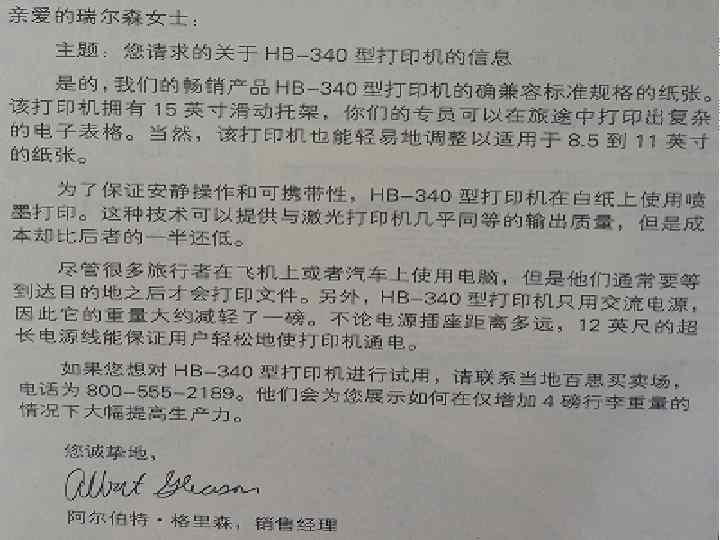 亲爱的瑞尔森女士：
主题：您请求的关于 HB-340 型打印机的信息
是的，我们的畅销产品 HB-340 型打印机的确兼容标准规格的纸张。
该打印机拥有 15 英寸滑动托架，你们的专员可以在旅途中打印出复杂
的电子表格。当然，该打印机也能轻易地调整以适用于 8.5 到 11 英寸
的纸张。
为了保证安静操作和可携带性，HB-340 型打印机在白纸上使用喷
墨打印。这种技术可以提供与激光打印机几乎同等的输出质量，但是成
本却比后者的一半还低。
尽管很多旅行者在飞机上或者汽车上使用电脑，但是他们通常要等
到达目的地之后才会打印文件。另外，HB-340 型打印机只用交流电源，
因此它的重量大约减轻了一磅。不论电源插座距离多远，12 英尺的超
长电源线能保证用户轻松地使打印机通电。
如果您想对 HB-340 型打印机进行试用，请联系当地百思买卖场，
电话为 800-555-2189。他们会为您展示如何在仅增加 4 磅行李重量的
情况下大幅提高生产力。
您诚挚地，
Albert Gleason
阿尔伯特·格里森，销售经理